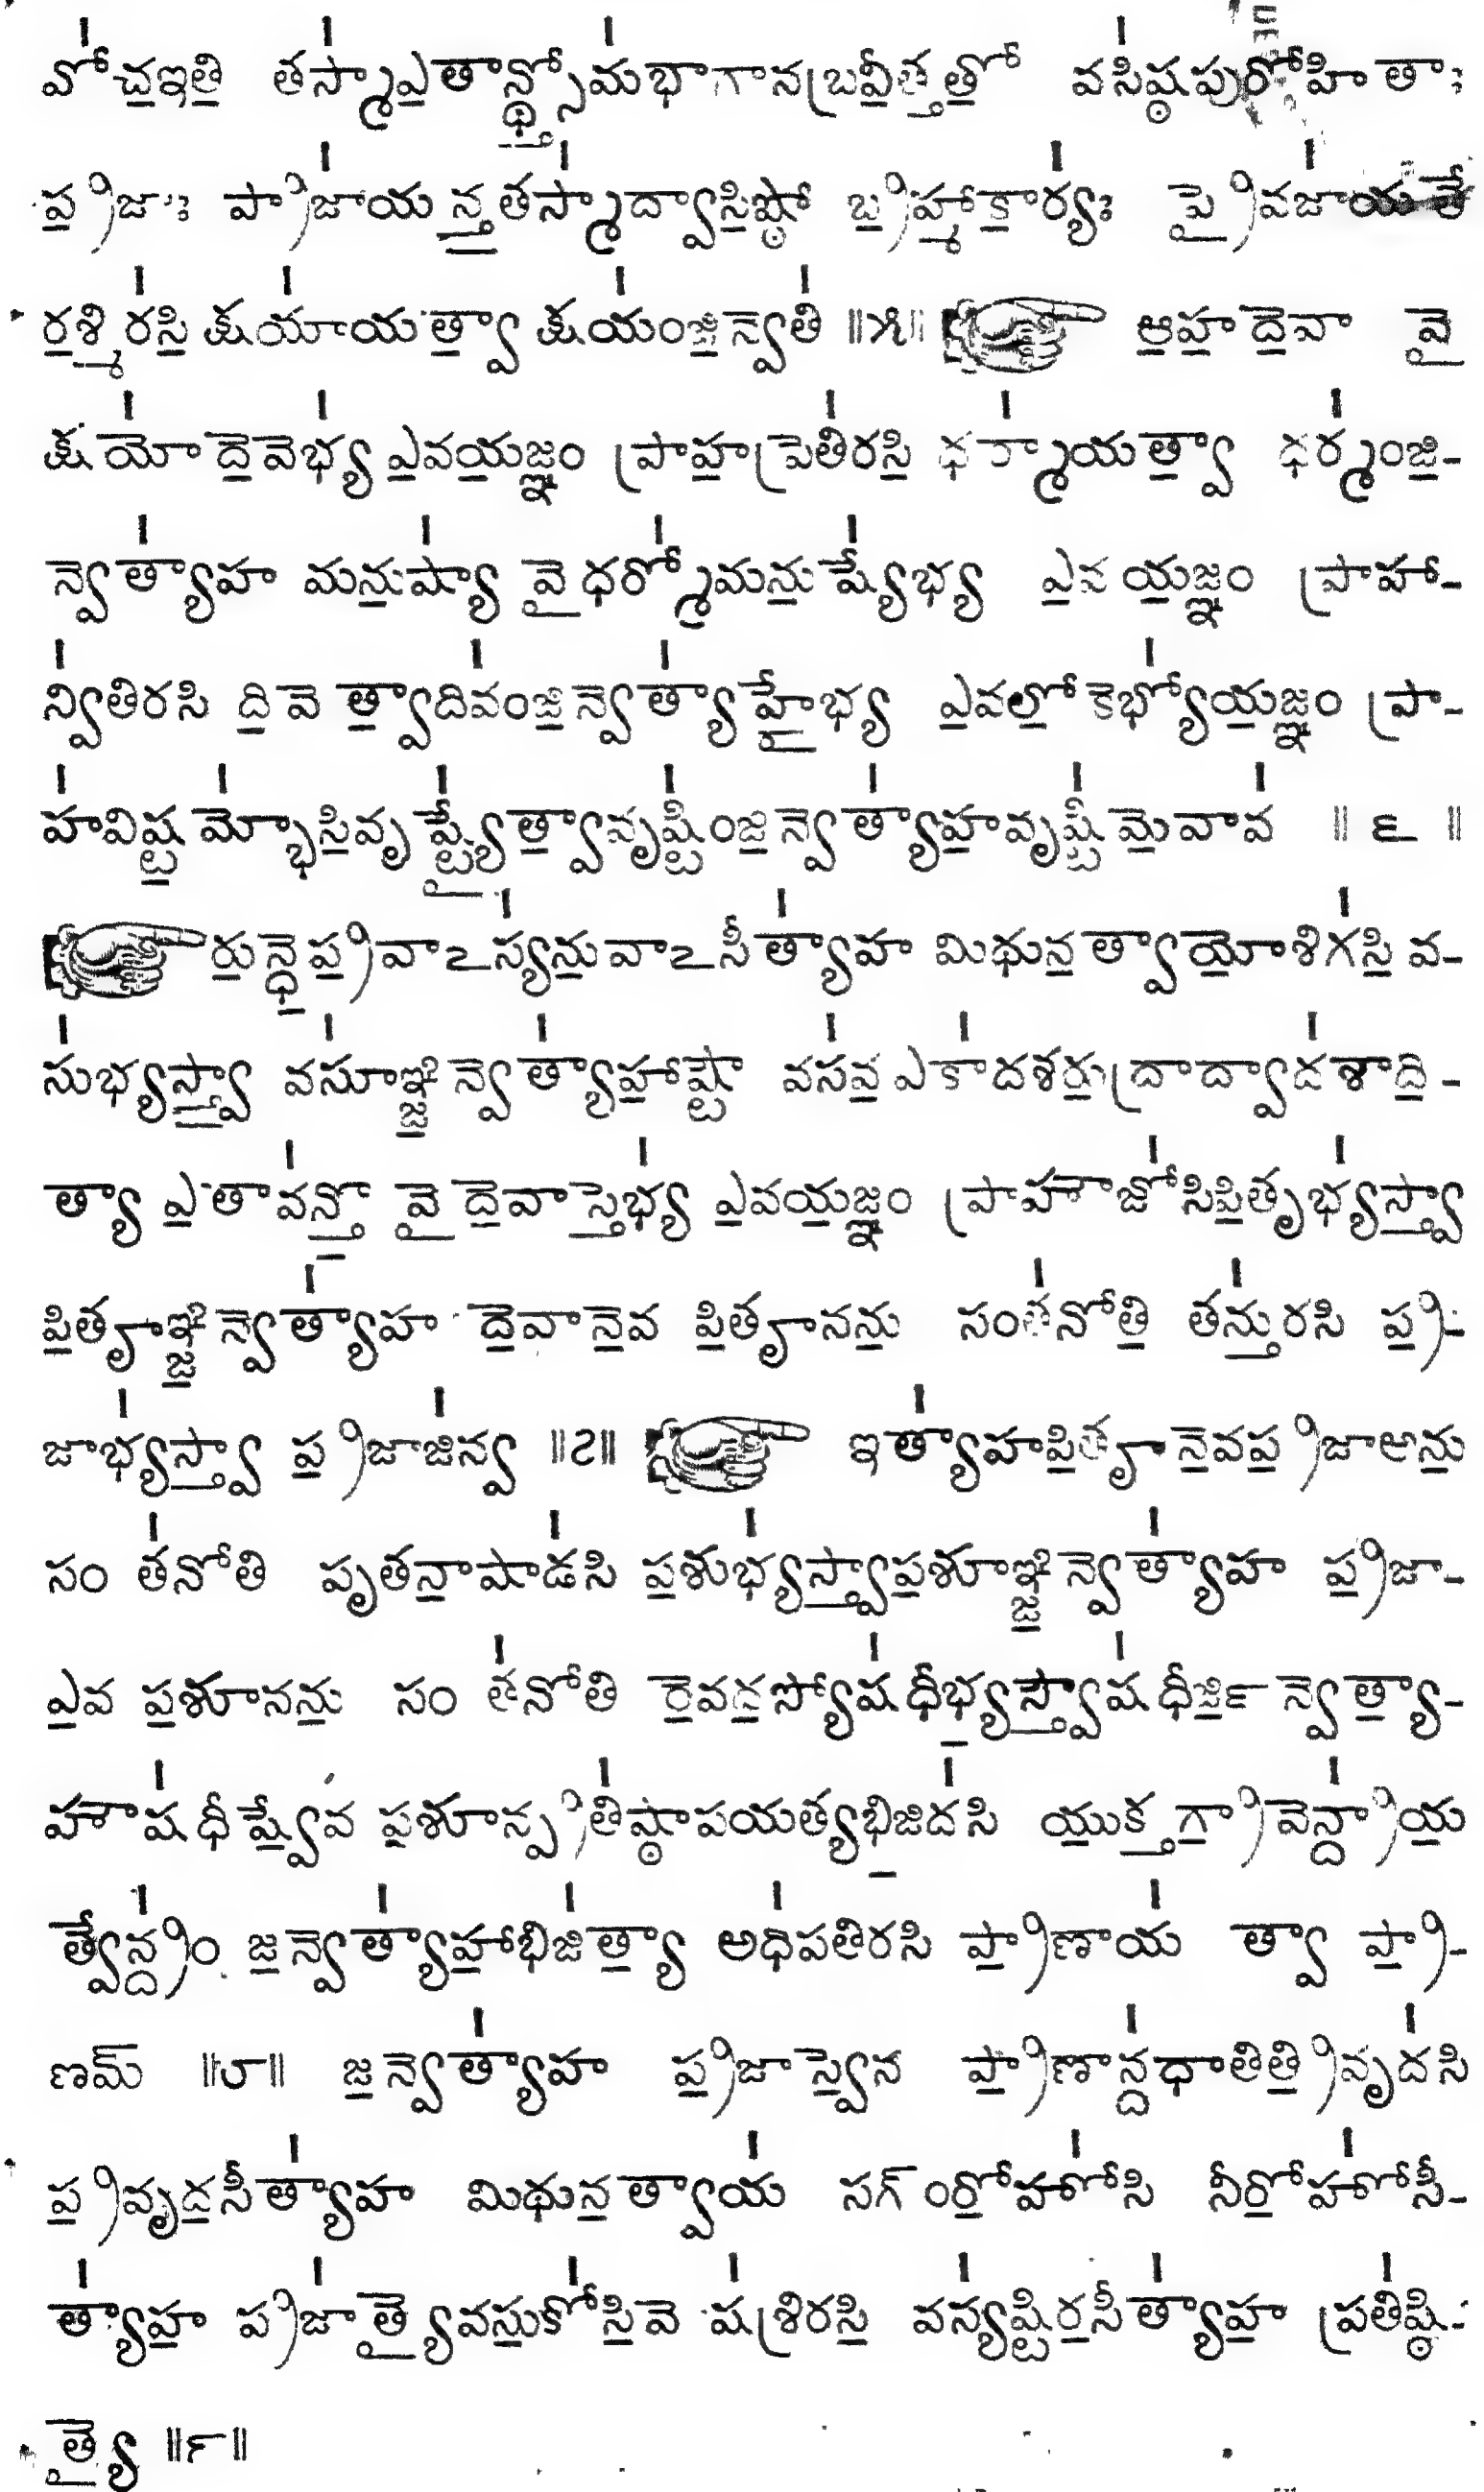 వో॑చ॒ఇతి॒ త॒స్మా॑ఎ॒తాన్థ్స్తో॒మ॑భాగానబ్రవీ॒త్త॒తో॒ వసి॑ష్ఠపురోహితాః
ప్ర॒జాః ప్రాజా॑యన్త॒తస్మా॑ద్వాసి॒ష్ఠో బ్ర॒హ్మాకా॒ర్యః॑ ప్రైవజా॑యతే
ర॒శ్మిర॑సి॒ క్షయా॑యత్వా॒ క్షయం॑జి॒న్వేతి॑ ॥౫॥ ఆ॒హ॒దే॒వా వై॒
క్షయో॑దే॒వేభ్య॑ఎ॒వయ॒జ్ఞం ప్రాహ॒ప్రేతి॑రసి॒ ధర్మా॑యత్వా॒ ధర్మం॑జి॒-
న్వేత్యా॑హ మను॒ష్యా॑ వై॒ధర్మో॑మను॒ష్యే॑భ్య ఎ॒వ య॒జ్ఞం ప్రాహా-
న్వి॑తిరసి ది॒వే త్వా॒దివం॑జి॒న్వేత్యా॑హై॒భ్య ఎ॒వలో॒కేభ్యో॑య॒జ్ఞం ప్రా-
హ॑విష్ట॒మ్భో॑సి॒వృష్ట్యై॑త్వా॒వృష్టిం॑జి॒న్వేత్యా॑హ॒వృష్టి॑మే॒వావ॑ ॥ ౬ ॥
రు॒న్ధే॒ప్ర॒వాఽస్య॑ను॒వాఽసీత్యా॑హ మిథున॒త్వాయో॒శిగ॑సి॒ వ-
సు॑భ్యస్త్వా॒ వసూ॑ఞ్జి॒న్వేత్యా॑హా॒ష్టౌ వస॑వ॒ఎకా॑దశరు॒ద్రాద్వాద॑శాది॒-
త్యా ఎ॒తావ॑న్తో॒ వై॒దే॒వాస్తేభ్య॑ ఎ॒వయ॒జ్ఞం ప్రాహౌజో॑సిపి॒తృభ్య॑స్త్వా॒
పి॒తౄఞ్జి॒న్వేత్యా॑హ దే॒వానేవ పి॒తౄనను॒ సంత॑నోతి॒ తన్తు॑రసి ప్ర॒-
జాభ్య॑స్త్వా॒ ప్ర॒జాజి॑న్వ ॥౭॥ ఇత్యా॑హపి॒తౄనే॒వప్ర॒జాఅను॒
సం త॑నోతి పృతనా॒షాడ॑సి ప॒శుభ్య॑స్త్వా॒ప॒శూఞ్జి॒న్వేత్యా॑హ ప్ర॒జా-
ఎ॒వ ప॒శూనను॒ సం త॑నోతి రే॒వద॒స్యోష॑ధీభ్య॒స్త్వౌష॑ధీర్జి॒న్వేత్యా॒-
హౌష॑ధీష్వే॒వ ప॒శూన్ప్రతి॑ష్ఠాపయత్యభి॒జిద॑సి యు॒క్తగ్రా॒వేన్ద్రా॑య॒
త్వేన్ద్రం॑ జి॒న్వేత్యా॑హా॒భిజి॑త్యా॒ అధి॑పతిరసి ప్రా॒ణాయ॑ త్వా ప్రా॒-
ణమ్ ॥౮॥ జి॒న్వేత్యా॑హ ప్ర॒జాస్వే॒వ ప్రా॒ణాన్ద॑ధాతిత్రి॒వృద॑సి
ప్ర॒వృద॒సీత్యా॑హ మిథున॒త్వాయ॑ సగ్ంరో॒హో॑సి నీరో॒హో॑సీ-
త్యా॑హ॒ ప్రజా॑త్యై॒వసు॒కో॑సి॒వే ష॑శ్రిరసి॒ వస్య॑ష్టిర॒సీత్యా॑హ॒ ప్రతి॑ష్ఠి-
త్యై॒ ॥౯॥